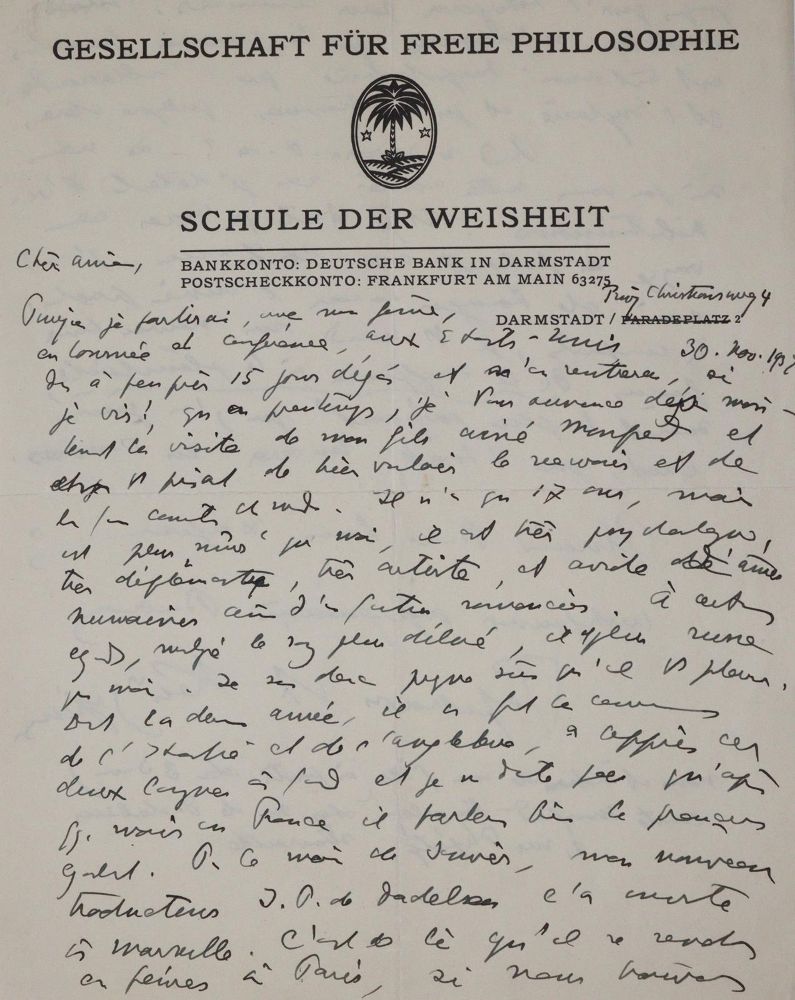 GESELLSCHAFT FÜR FREIE PHILOSOPHIE
SCHULE DER WEISHEIT
Cher ami,
BANKKONTO: DEUTSCHE BANK IN DARMSTADT
POSTSCHECKKONTO: FRANKFURT AM MAIN 63275
Prinz Christiansweg 4
DARMSTADT / PARADEPLATZ 2
30. Nov. 193
Puisque je partirai, avec ma femme,
en tournée de conférence, aux Etats-Unis
à peu près 15 jours déjà et n'en rentrerai, si
je vis! qu'au printemps, je vous annonce déjà main-
tenant la visite de mon fils ainé Manfred et
de bien vouloir le recevoir et de
. Il n'a que 17 ans, mais
est plus mûr que moi, il est très psychologue,
très , très artiste, et avide d'âmes
humaines . À certains
égards, malgré le sang plus dilué, il est plus russe
que moi. Je suis donc sûr qu'il vs plaira.
il a fait la connaissance
de l' et de l'Angleterre, a appris ces
deux langues à fond et je ne doute pas qu'après
qq. mois en France il parlera bien le français
. P. le mois de Janvier, mon nouveau
traducteur J. P. de Dadelsen l'a invité
à Marseille. C'est de là qu'il se rendra
en février à Paris, si nous trouvons